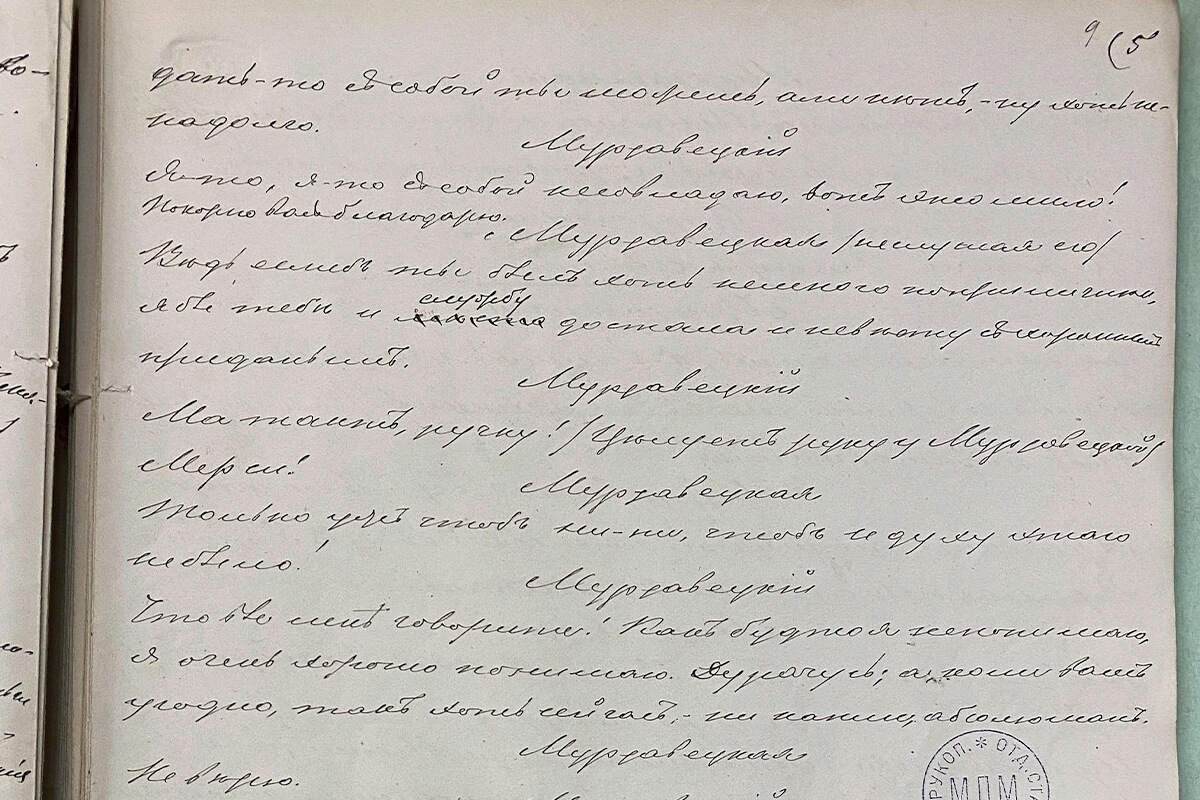 9 (5
дать-то съ собой ты можешь, али нѣтъ, - ну хоть не-
надолго.
Мурзавецкій
Я-то, я-то съ собой несовладаю, вотъ это мило!
Покорно васъ благодарю.
Мурзавецкая (неслушая его)
Вѣдь еслибъ ты былъ хоть немного поприличнѣй,
я бы тебѣ и службу достала и невѣсту съ хорошимъ
приданымъ.
Мурзавецкій
Ма тантъ, ручку! (Цѣлуетъ руку у Мурзавецкой)
Мерси!
Мурзавецкая
Только ужъ чтобъ ни-ни, чтобъ и духу этого
небыло!
Мурзавецкій
Что вы мнѣ говорите! Какъ будто я непонимаю,
я очень хорошо понимаю. Дурачусь; а коли вамъ
угодно, такъ хоть сейчасъ, - ни капли, абсолюманъ.
Мурзавецкая
Не вѣрю.
РУКОП. * ОТД. СТ